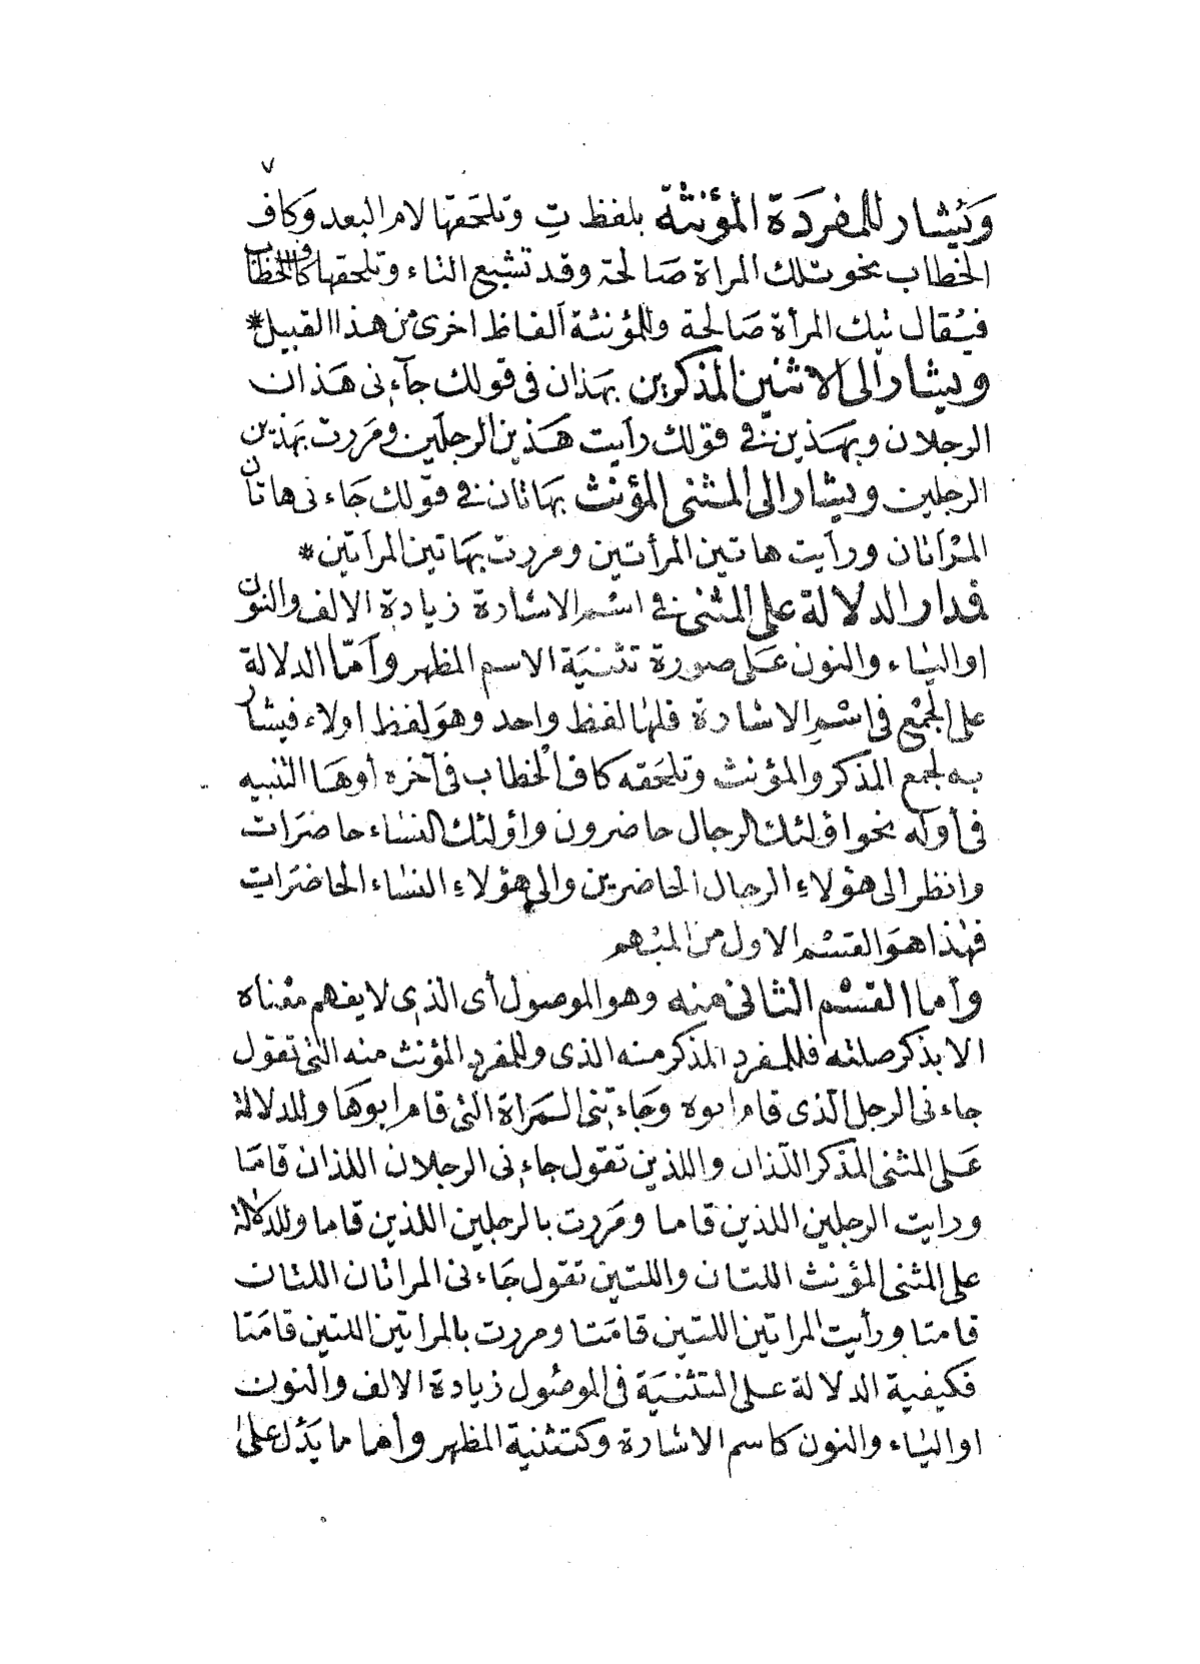 ٧
وَيُشار للمفرَدَة المؤنثة بلفظ تِ وتلحَقها لام البعد وَكاف
الخطاب نحو تلك المراة صَالحة وقد تشبع التاء وتلحقها كاف الخطاب
فيُقال تيك المرأة صَالحة وللمؤنثة ألفاظ اخرى من هذا القبيل*
ويشار الى الاثنين المذكرين بهذان فى قولك جآءنى هَذان
الرجلان وبهَذين فى قولك رأيت هَذين الرجلَين ومَررت بهَذين
الرجلين ويشار الى المثنى المؤنث بهَاتان فى قولك جَاءنى هاتان
المرْأتان ورأيت هاتين المرأتين ومررت بهَاتين المرأتين*
فمدار الدلالة على المثنى فى اسْم الاشارة زيادة الالف والنون
او الياء والنون عَلى صورة تثنيَة الاسم المظهر وأمّا الدلالة
على الجمْع فى اسْمِ الاشارة فلهَا لفظ واحد وهوَ لفظ اولاء فيشار
به لجمع المذكر والمؤنث وتلحَقه كاف الخطاب فى آخره أو هَا التنبيه
فى أوله نحو اولئك الرجال حاضرون واولئك النسَاء حاضرَات
وانظر الى هؤلاءِ الرجال الحاضرين والى هؤلاءِ النسَاء الحاضرَات
فهٰذا هوَ القسْم الاول من المبْهم
وأما القسْم الثانى منه وهو الموصول أى الذى لا يفهم معْناه
الا بذكر صلته فللمفرد المذكر منه الذى وللمفرد المؤنث منه التى تقول
جاءنى الرجل الّذى قام ابوه وجَاءتنى المرَاة التى قام ابوهَا وللدلالة
عَلى المثنى المذكر اللّذان واللذين تقول جاءنى الرجلان اللذان قامَا
ورايت الرجلين اللذين قاما ومَررت بالرجلين اللذين قاما وللدلالة
على المثنى المؤنث اللتان واللتين تقول جَاءنى المراتان اللتان
قامتا ورأيت المراتين اللتين قامَتا ومررت بالمراتين اللتين قامَتا
فكيفية الدلالة عَلى التثنيَة فى الموصُول زيادة الالف والنون
او اليَاء والنون كاسم الاشارة وكتثنية المظهر وأما ما يَدُل على